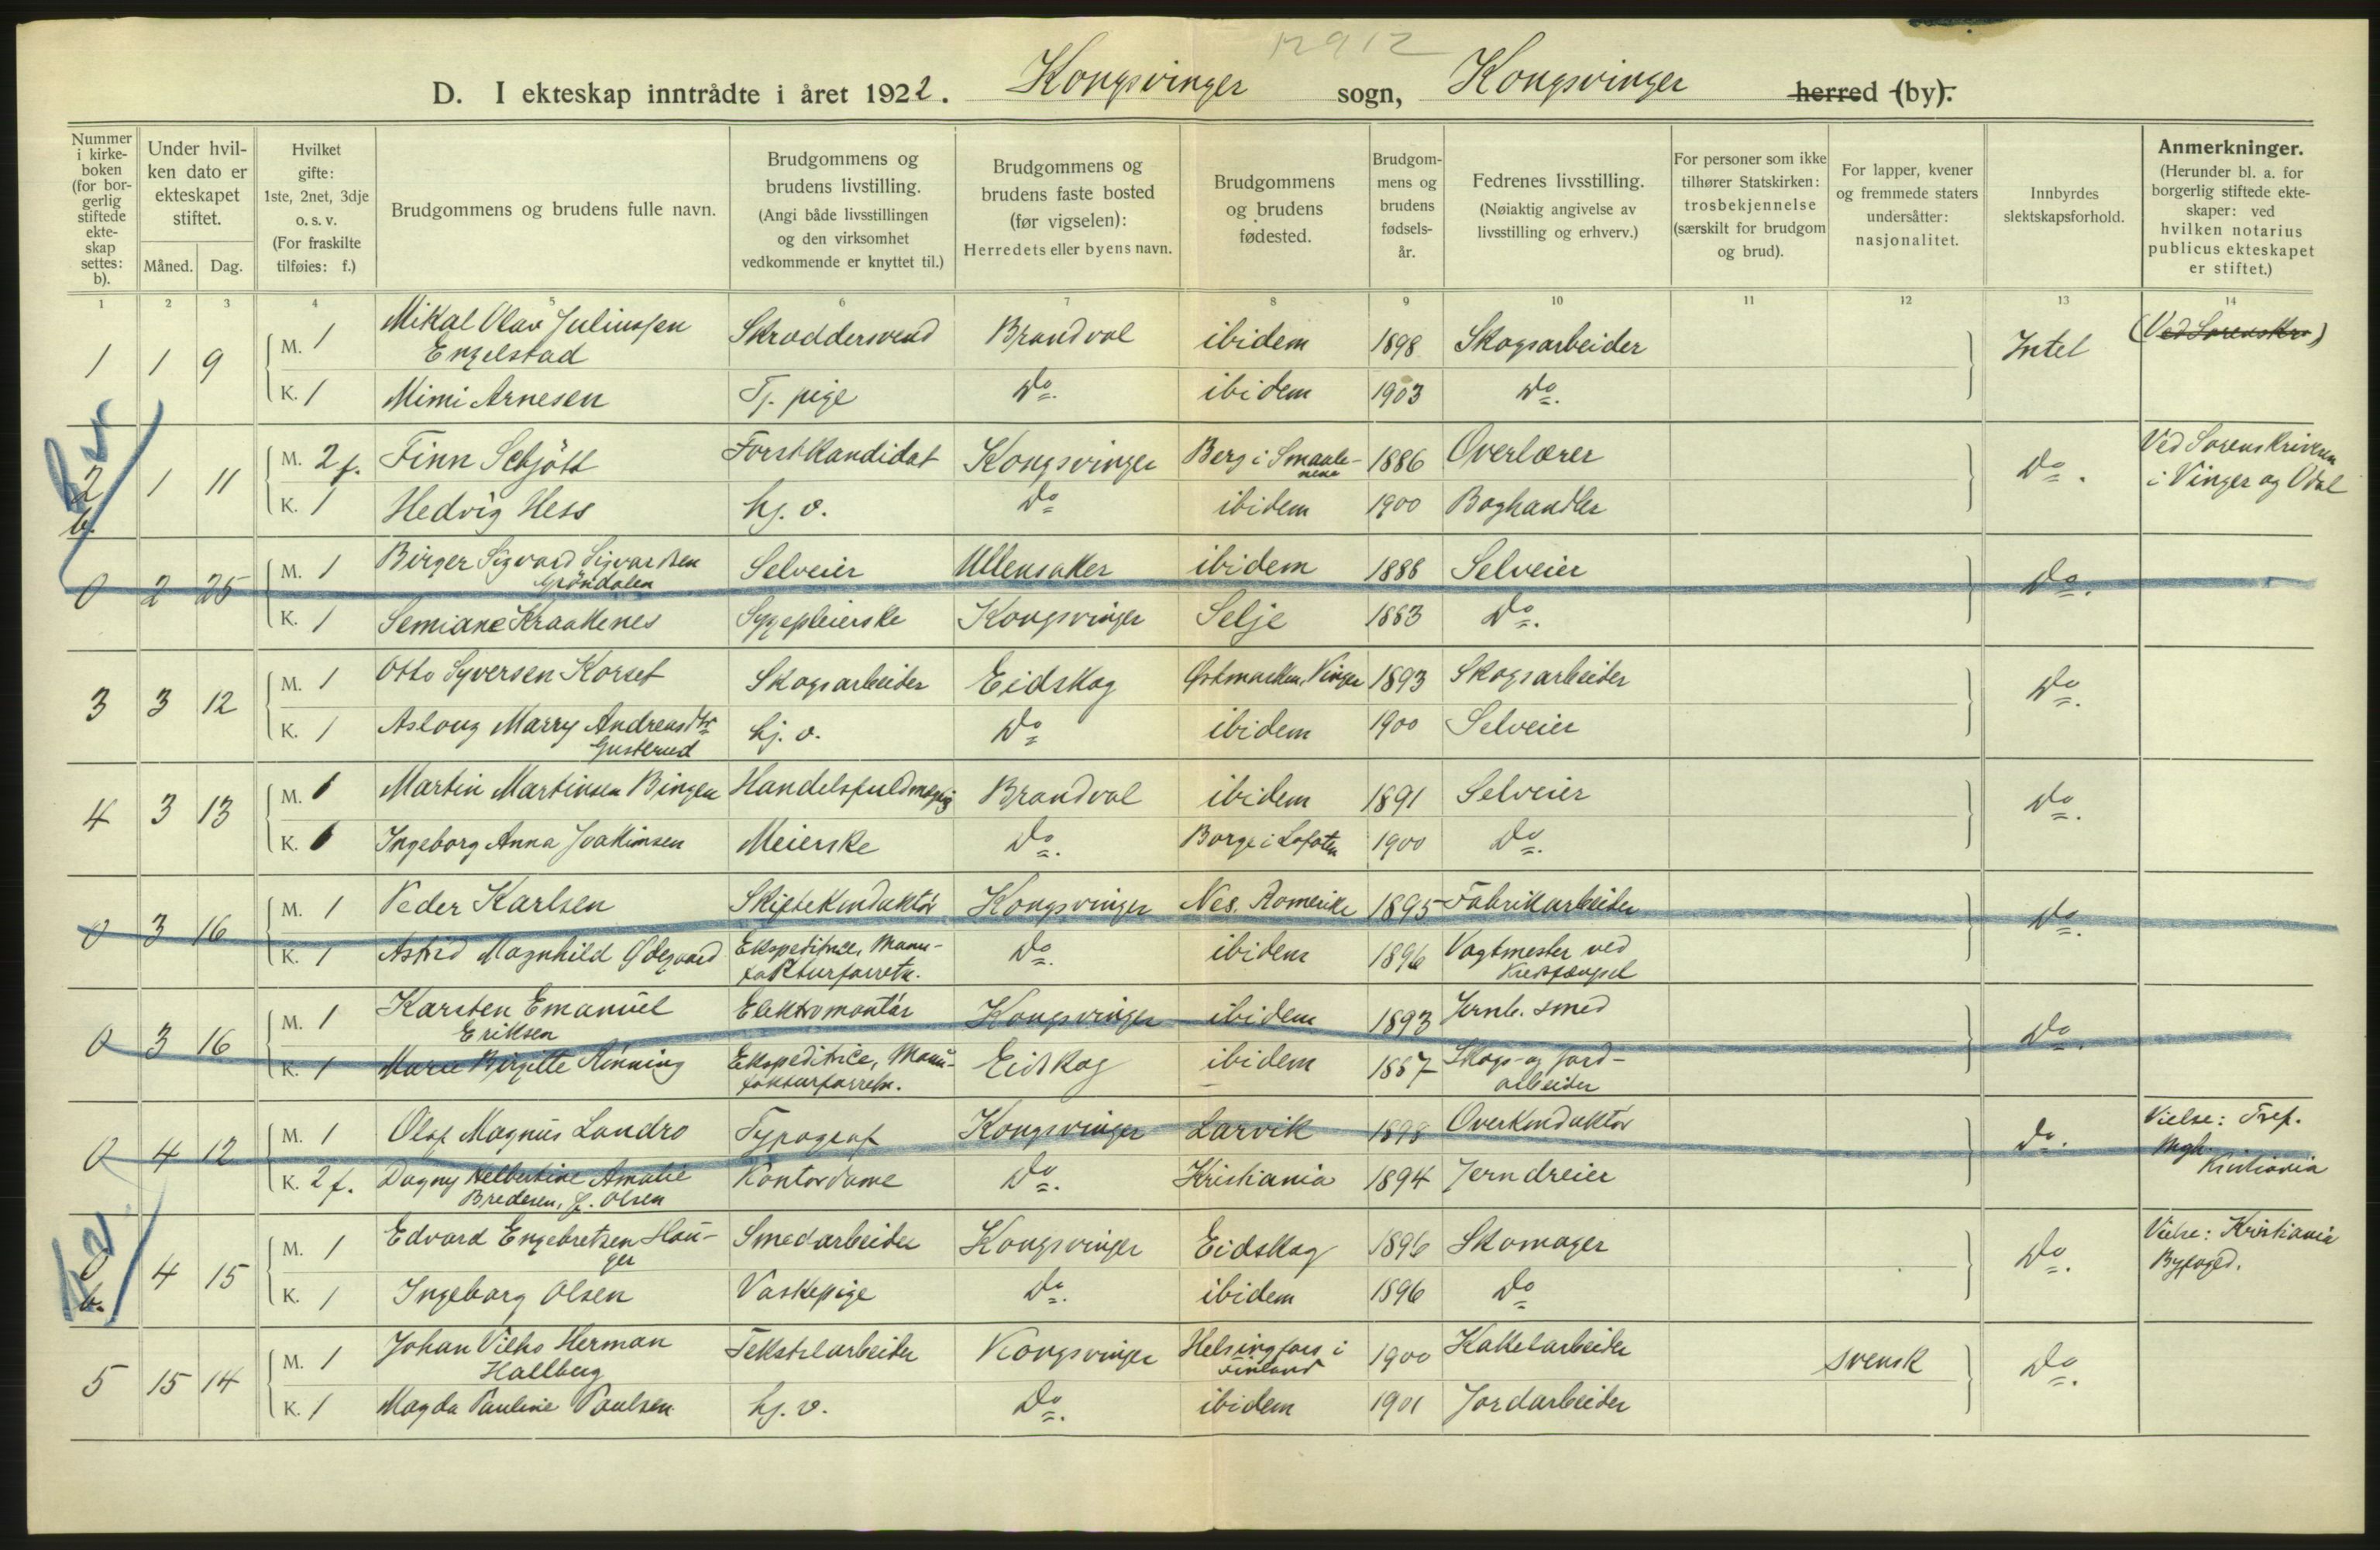 12912
D. I ekteskap inntrådte i året 1922. Kongsvinger sogn, Kongsvinger herred (by).
Nummer i kirkeboken (for borgerlig stiftede ekteskap settes: b).
Under hvilken dato er ekteskapet stiftet.
Måned. Dag.
Hvilket gifte: 1ste, 2net, 3dje o. s. v. (For fraskilte tilføies: f.)
Brudgommens og brudens fulle navn.
Brudgommens og brudens livstilling. (Angi både livsstillingen og den virksomhet vedkommende er knyttet til.)
Brudgommens og brudens faste bosted (før vigselen): Herredets eller byens navn.
Brudgommens og brudens fødested.
Brudgommens og brudens fødselsår.
Fedrenes livsstilling. (Nøiaktig angivelse av livsstilling og erhverv.)
For personer som ikke tilhører Statskirken: trosbekjennelse (særskilt for brudgom og brud).
For lapper, kvener og fremmede staters undersåtter: nasjonalitet.
Innbyrdes slektskapsforhold.
Anmerkninger. (Herunder bl. a. for borgerlig stiftede ekteskaper: ved hvilken notarius publicus ekteskapet er stiftet.)
1 2 3 4 5 6 7 8 9 10 11 12 13 14
1 1 9 M. 1 Mikal Olav Juliussen Engelstad Skræddersvend Brandval ibidem 1898 Skogsarbeider Intet (Ved Sorenskr)
K. 1 Mimi Arnesen Tj. pige Do. ibidem 1903 Do.
2 b. 1 11 M. 2 f. Finn Schjött Forstkandidat Kongsvinger Berg i Smaalenene 1886 Overlærer Do. Ved Sorenskriveren i Vinger og Odal
K. 1 Hedvig Hess hj. v. Do ibidem 1900 Boghandler
0 2 25 M. 1 Birger Sigvard Sigvardsen Gröndalen Selveier Ullensaker ibidem 1886 Selveier Do.
K. 1 Semiane Kraakenes Sygepleierske Kongsvinger Selje 1883 Do.
3 3 12 M. 1 Otto Syversen Korset Skogsarbeider Eidskog Östmarken, Vinger 1893 Skogsarbeider Do.
K. 1 Aslaug Marry Andreasdtr Gusterud hj. v. Do ibidem 1900 Selveier
4 3 13 M. 1 Martin Martinsen Bingen Handelsfuldmægtig Brandval ibidem 1891 Selveier Do.
K. 1 Ingeborg Anna Joakimsen Meierske Do. Borge i Lofoten 1900 Do.
0 3 16 M. 1 Peder Karlsen Skiftekonduktör Kongsvinger Nes, Romerike 1895 Fabrikarbeider Do.
K. 1 Astrid Magnhild Ödegaard Ekspeditrice, Manufakturforretn. Do. ibidem 1896 Vagtmester ved Kredsfængsel
0 3 16 M. 1 Karsten Emanuel Eriksen Elektromontör Kongsvinger ibidem 1893 Jernb. smed Do.
K. 1 Marie Birgitte Rönning Ekspeditrice, Manufakturforretn. Eidskog ibidem 1887 Skogs- og Jordarbeider
0 4 12 M. 1 Olaf Magnus Landro Typograf Kongsvinger Larvik 1898 Overkonduktör Do. Vielse: Tref. Mgh. Kristiania
K. 2 f. Dagny Helbertine Amalie Bredesen, f. Olsen Kontordame Do. Kristiania 1894 Jerndreier
b. 4 15 M. 1 Edvard Engebretsen Hauger Smedarbeider Kongsvinger Eidskog 1896 Skomager Do. Vielse: Kristiania Byfoged.
K. 1 Ingeborg Olsen Vaskepige Do. ibidem 1896 Do
5 15 14 M. 1 Johan Vilho Herman Hallberg Tekstilarbeider Kongsvinger Helsingfors i Finland 1900 Kakkelarbeider svensk Do.
K. 1 Magda Pauline Paulsen hj. v. Do. ibidem 1901 Jordarbeider